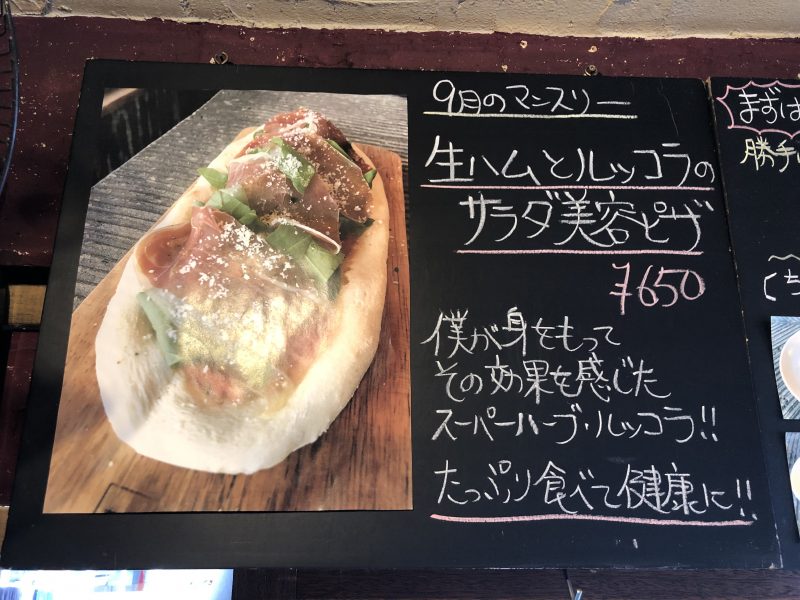 9月のマンスリー
生ハムとルッコラの
サラダ美容ピザ
¥650
僕が身をもって
その効果を感じた
スーパーハーブ・ルッコラ!!
たっぷり食べて健康に!!
まずは
勝手に